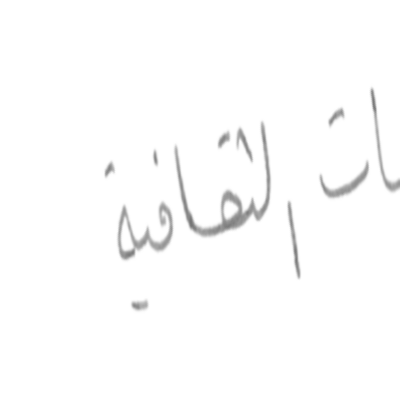 ات الثقافية